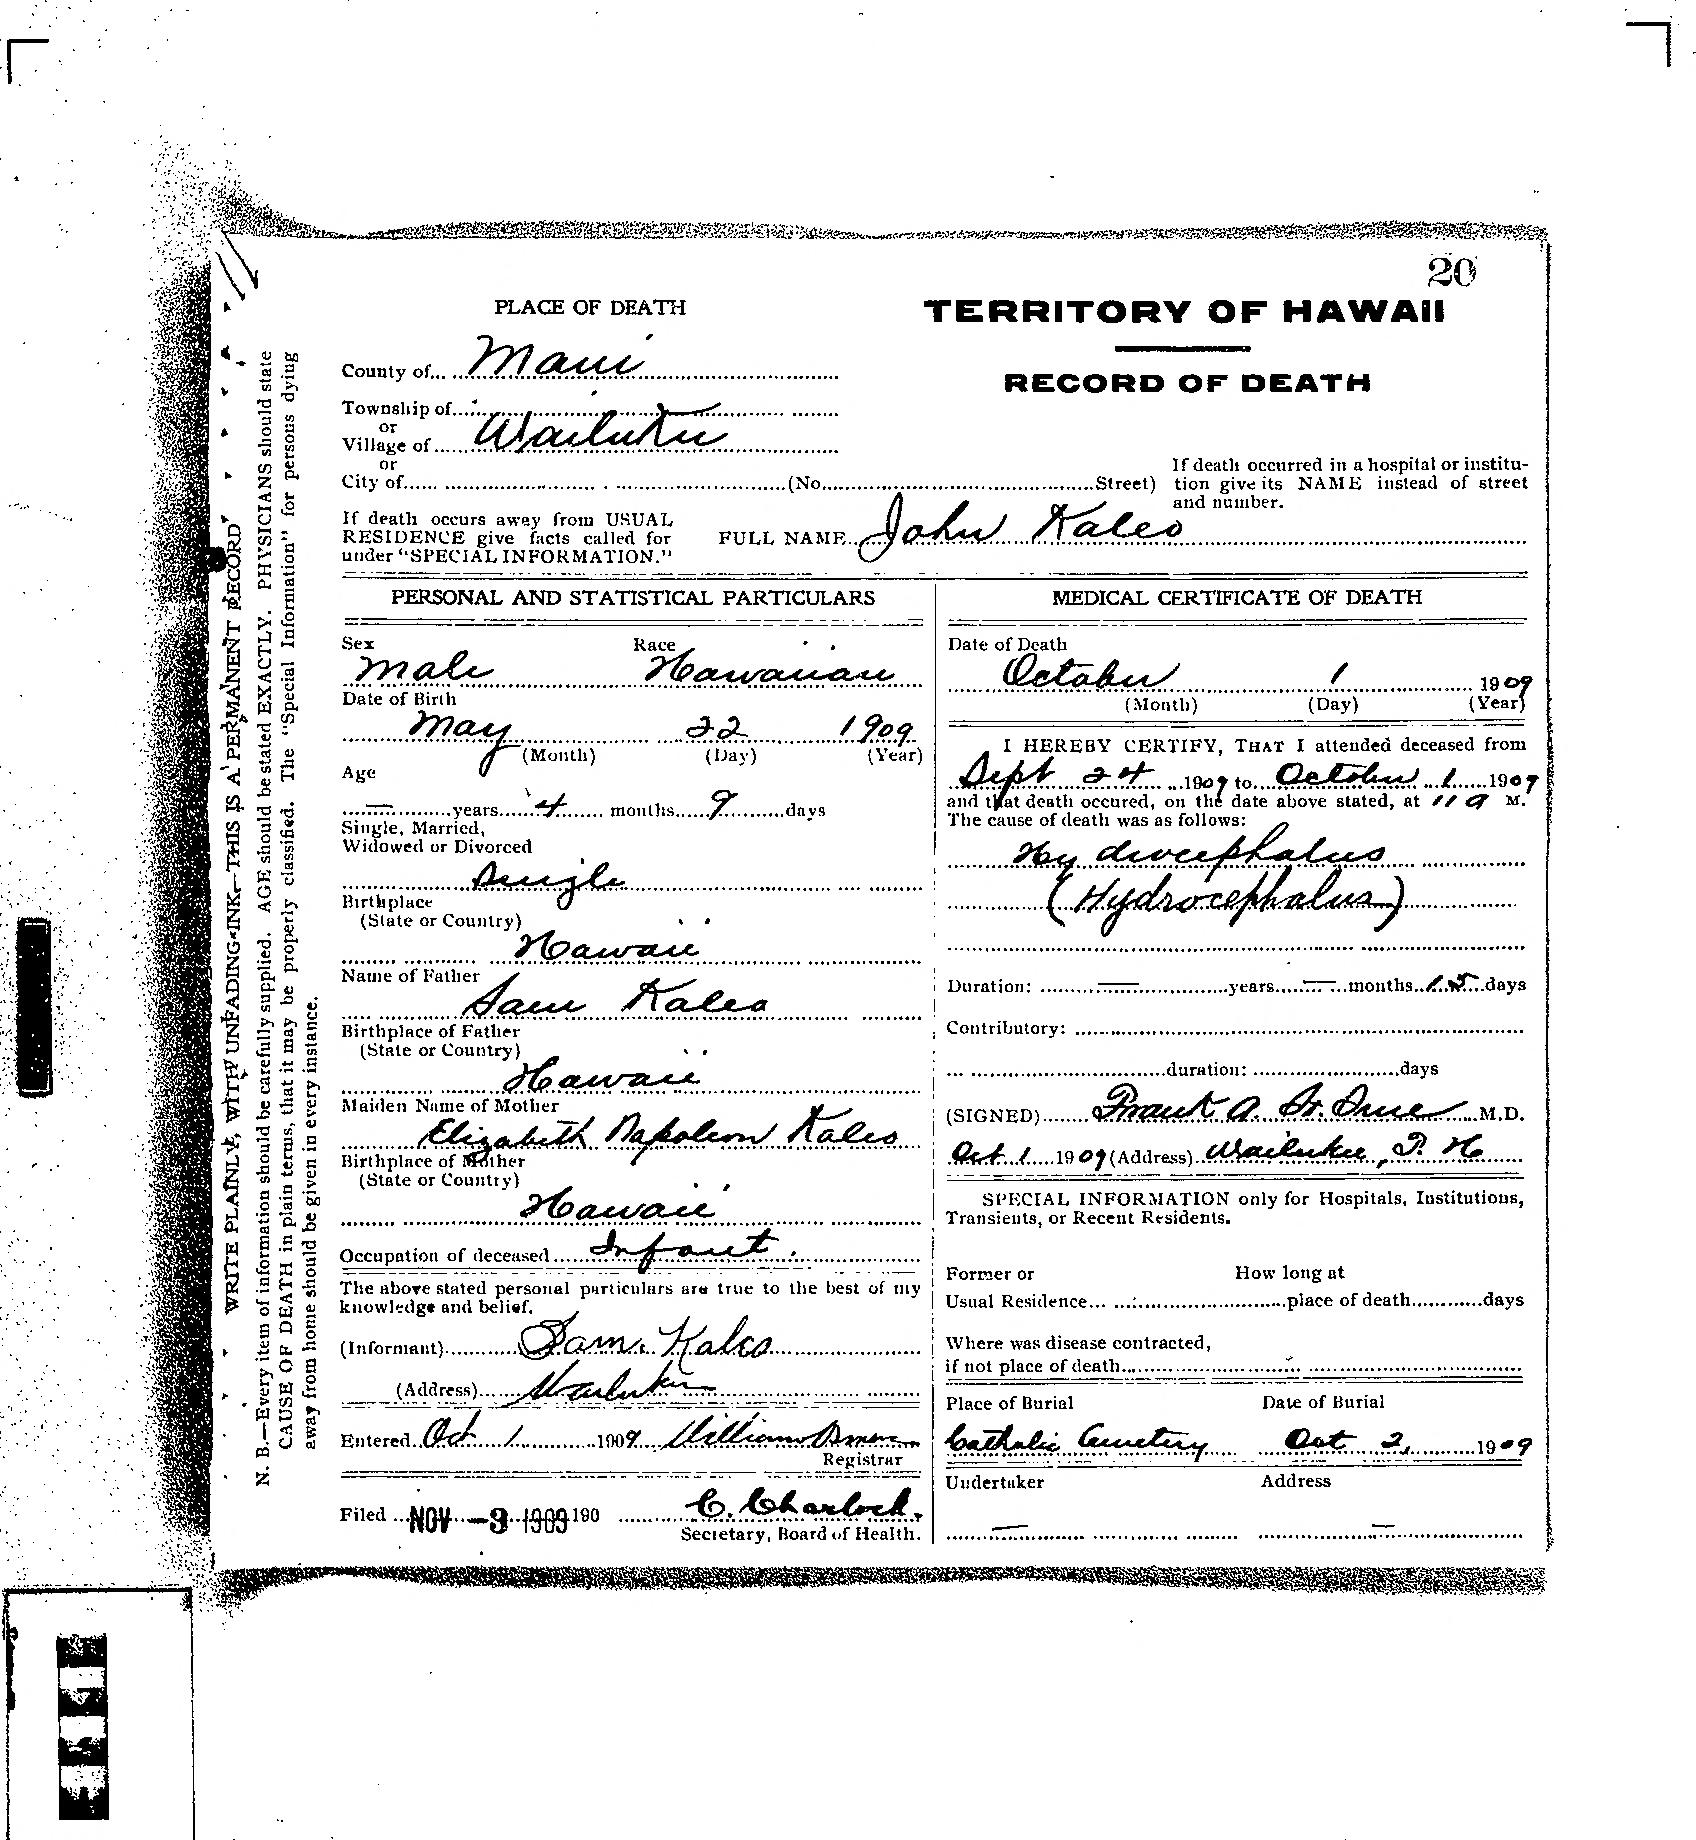 20
PLACE OF DEATH
TERRITORY OF HAWAII
RECORD OF DEATH
County of Maui
Township of
or
Village of Wailuku
or
City of (No. Street)
If death occurred in a hospital or institu-
tion give its NAME instead of street
and number.
If death occurs away from USUAL
RESIDENCE give facts called for
under "SPECIAL INFORMATION."
FULL NAME John Kaleo
PERSONAL AND STATISTICAL PARTICULARS
Sex Race
Male Hawaiian
Date of Birth
May 22 1909
(Month) (Day) (Year)
Age
— years 4 months 9 days
Single, Married,
Widowed or Divorced
Single
Birthplace
(State or Country)
Hawaii
Name of Father
Sam Kaleo
Birthplace of Father
(State or Country)
Hawaii
Maiden Name of Mother
Elizabeth Napoleon Kaleo
Birthplace of Mother
(State or Country)
Hawaii
Occupation of deceased Infant.
The above stated personal particulars are true to the best of my
knowledge and belief.
(Informant) Sam. Kaleo
(Address) Wailuku
Entered Oct 1 1909 William
Registrar
Filed NOV -3 1909 190 C. Charlock.
Secretary, Board of Health.
MEDICAL CERTIFICATE OF DEATH
Date of Death
October 1 1909
(Month) (Day) (Year)
I HEREBY CERTIFY, THAT I attended deceased from
Sept 24 1909 to October 1 1909
and that death occured, on the date above stated, at 11 a M.
The cause of death was as follows:
Hydrocephalus
(Hydrocephalus)
Duration: — years — months 15 days
Contributory:
duration: days
(SIGNED) Frank A. St. Sure M.D.
Oct 1 1909 (Address) Wailuku, T. H
SPECIAL INFORMATION only for Hospitals, Institutions,
Transients, or Recent Residents.
Former or How long at
Usual Residence place of death days
Where was disease contracted,
if not place of death
Place of Burial Date of Burial
Catholic Cemetery Oct 2, 1909
Undertaker Address
— —
WRITE PLAINLY, WITH UNFADING INK—THIS IS A PERMANENT RECORD
N. B.—Every item of information should be carefully supplied. AGE should be stated EXACTLY. PHYSICIANS should state
CAUSE OF DEATH in plain terms, that it may be properly classified. The "Special Information" for persons dying
away from home should be given in every instance.